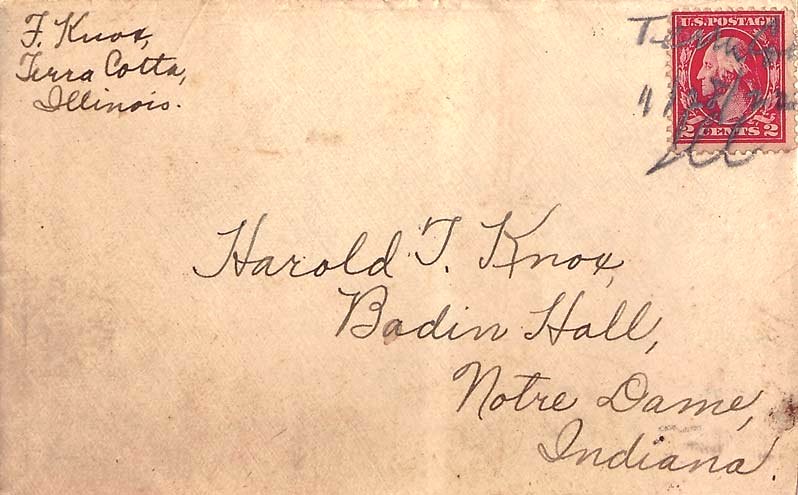 F. Knox,
Terra Cotta,
Illinois.
U.S. POSTAGE
2 CENTS 2
Ill
Harold T. Knox,
Badin Hall,
Notre Dame,
Indiana.